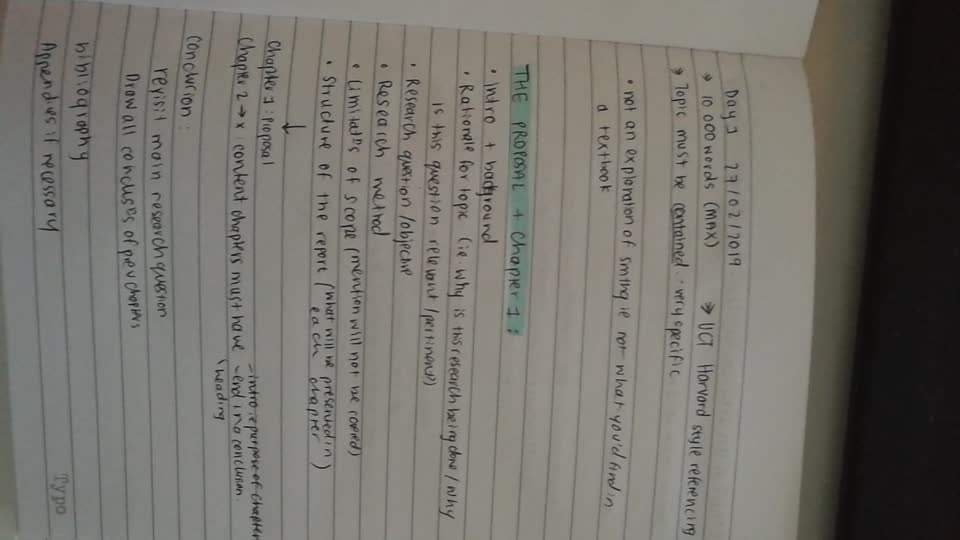 Day 1 27/02/2019
→ 10 000 words (MAX) → UCT Harvard style referencing
→ Topic must be contained - very specific
• not an explanation of smthg ie not what you'd find in
a textbook
THE PROPOSAL + Chapter 1 :
• intro + background
• Rationale for topic (ie. why is this research being done / why
is this question relevant / pertinent)
• Research question / objective
• Research method
• Limitatns of scope (mention will not be copied)
• Structure of the report (what will be presented in
each chapter)
↓
Chapter 1 : Proposal
Chapter 2 → x : content chapters must have - intro: purpose of chapter
- end in a conclusion
heading
Conclusion :
revisit main research question
Draw all conclusns of prev chapters
bibliography
Appendices if necessary
Typo